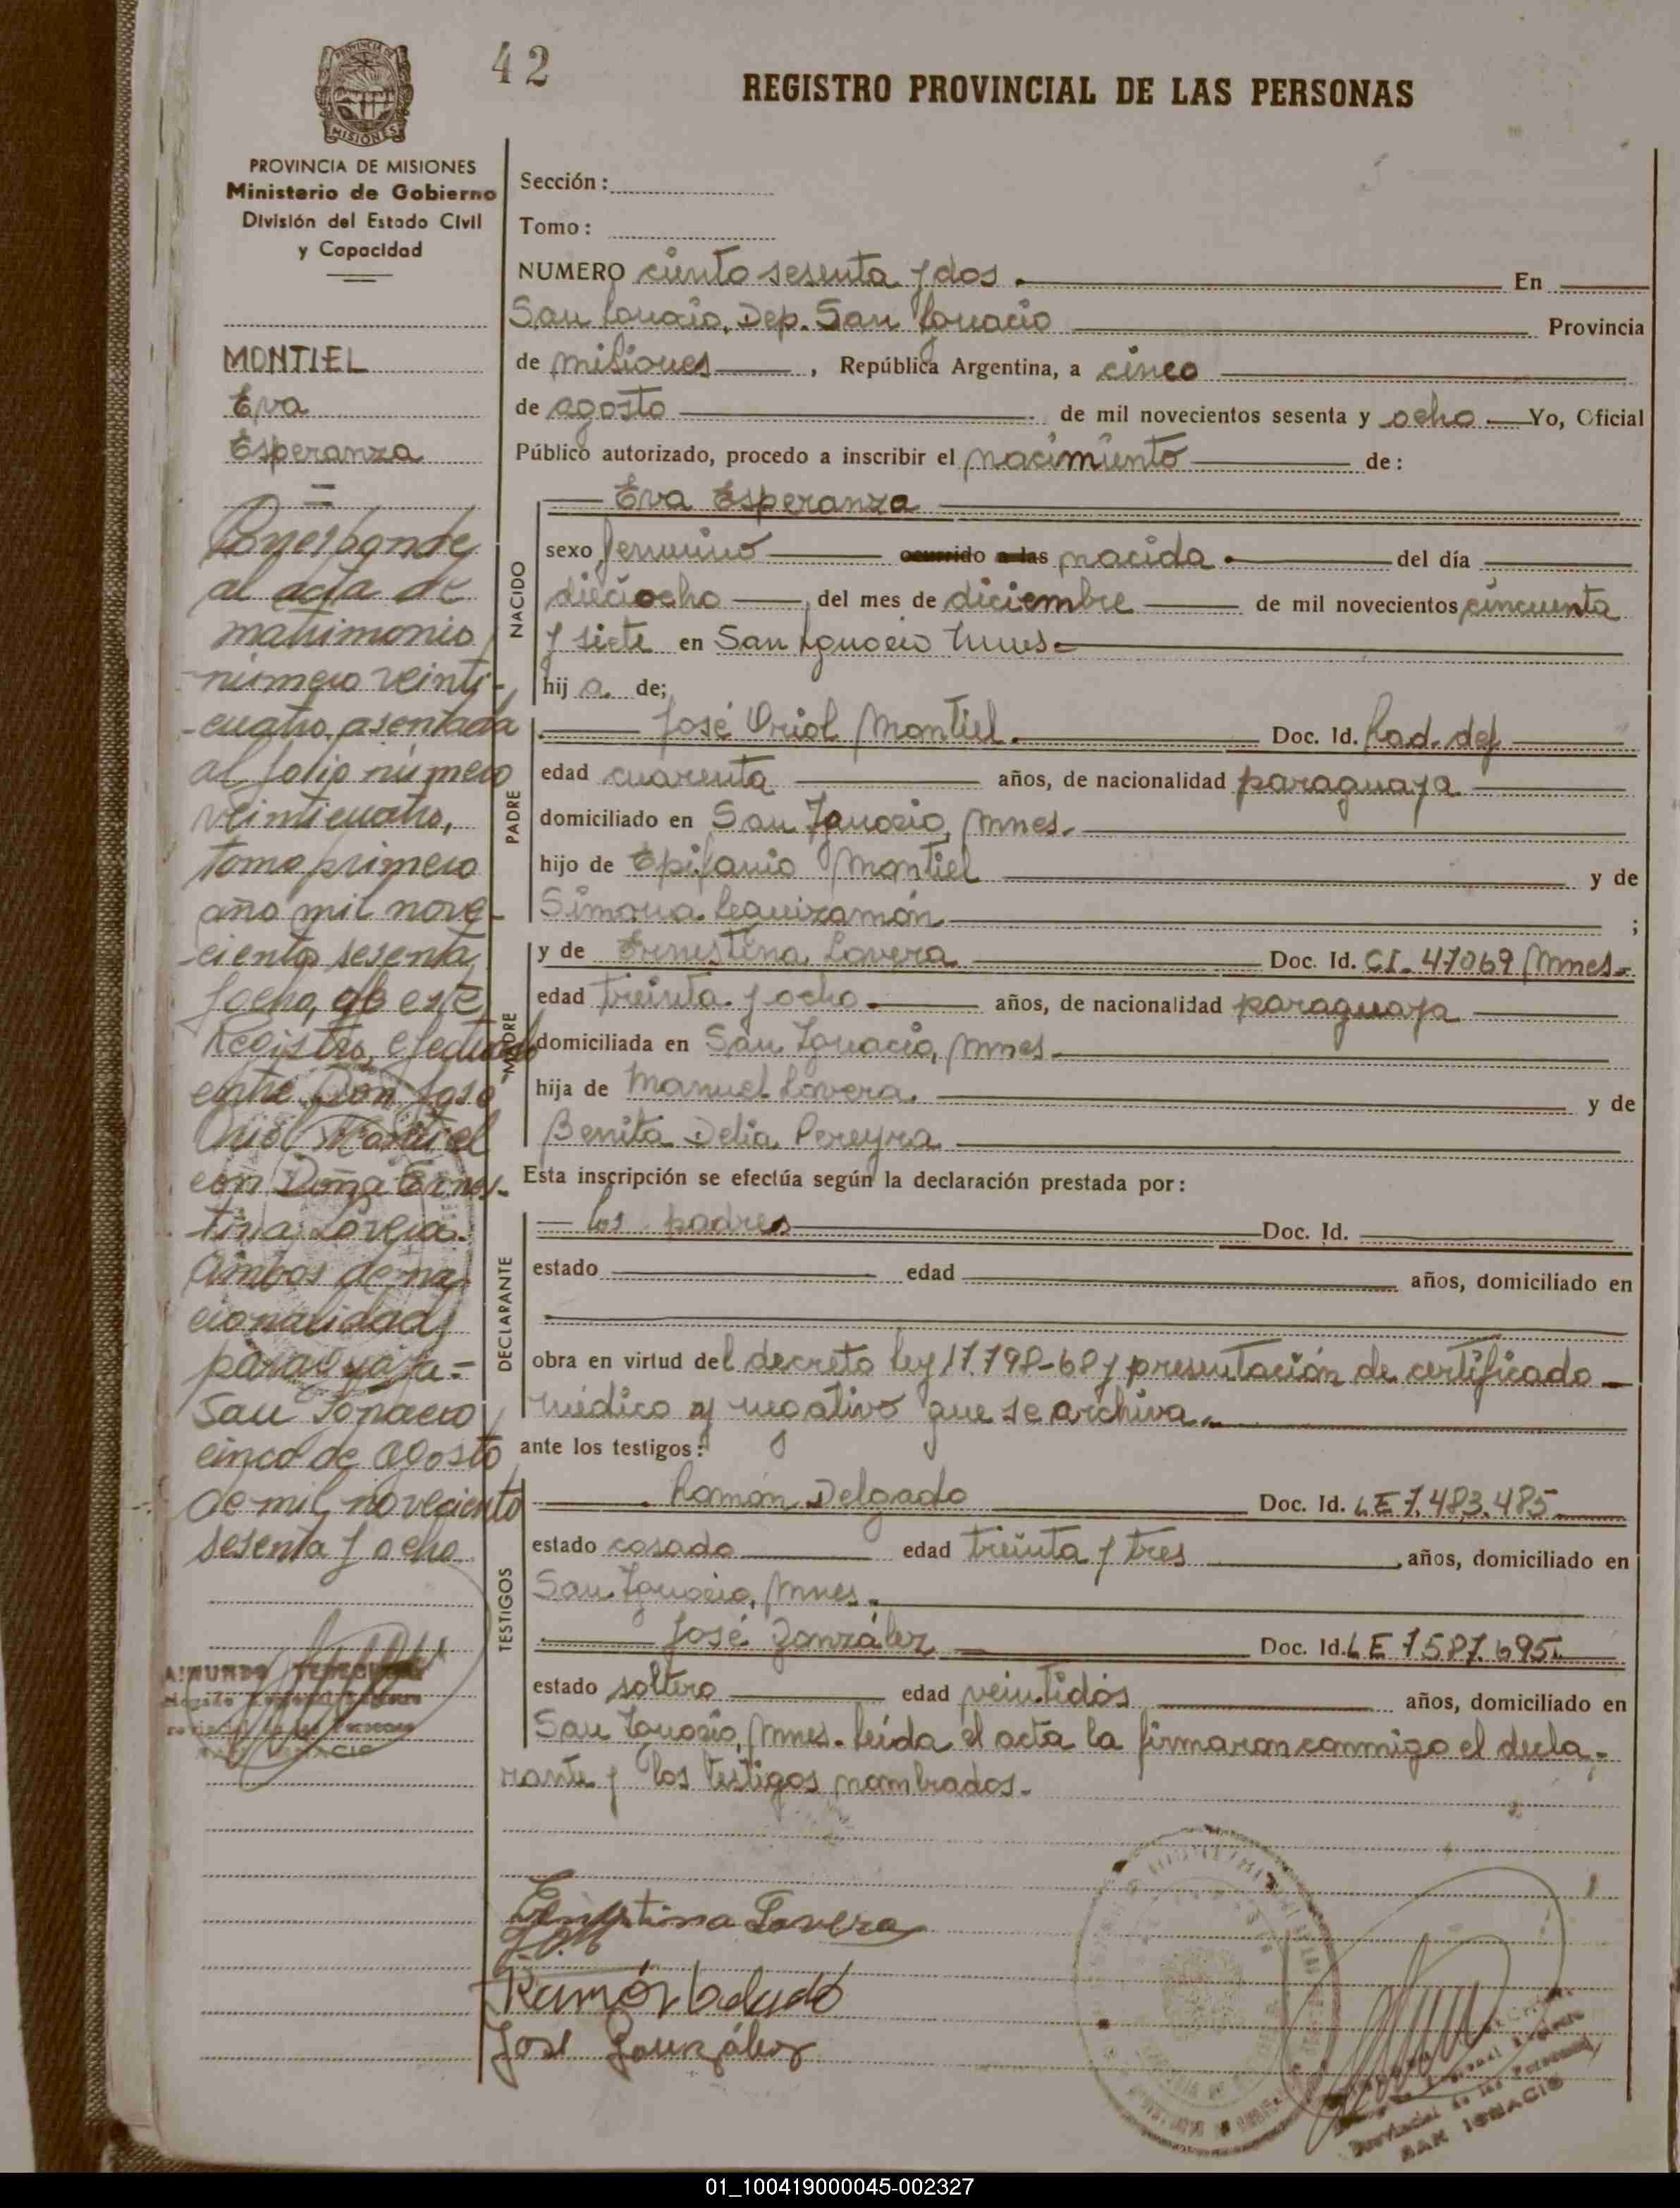 42
REGISTRO PROVINCIAL DE LAS PERSONAS
PROVINCIA DE MISIONES
PROVINCIA DE MISIONES
Ministerio de Gobierno
División del Estado Civil
y Capacidad
MONTIEL
Eva
Esperanza
=
Corresponde
al acta de
matrimonio
-número veinti-
-cuatro, asentada
al folio número
veinticuatro,
tomo primero
año mil nove-
-ciento sesenta
y ocho, de este
Registro, efectuado
entre Don José
Oriol Montiel
con Doña Ernes-
-tina Lovera.
Ambos de na
cionalidad
paraguaya=
San Ignacio
cinco de agosto
de mil novecientos
sesenta y ocho
SAN IGNACIO
Sección:
Tomo:
NUMERO ciento sesenta y dos. En
San Ignacio, Dep. San Ignacio Provincia
de misiones, República Argentina, a cinco
de agosto de mil novecientos sesenta y ocho Yo, Oficial
Público autorizado, procedo a inscribir el nacimiento de:
NACIDO
Eva Esperanza
sexo femenino ocurrido a las nacida del día
dieciocho, del mes de diciembre de mil novecientos cincuenta
y siete en San Ignacio Mnes-
hij a. de;
PADRE
José Oriol Montiel. Doc. Id. Rad. def
edad cuarenta años, de nacionalidad paraguaya
domiciliado en San Ignacio, Mnes.
hijo de Epifanio Montiel y de
Simona Leguizamón ;
MADRE
y de Ernestina Lovera Doc. Id. CI. 47069 Mnes.
edad treinta y ocho. años, de nacionalidad paraguaya
domiciliada en San Ignacio, Mnes.
hija de Manuel Lovera. y de
Benita Delia Pereyra
Esta inscripción se efectúa según la declaración prestada por:
DECLARANTE
los padres Doc. Id.
estado edad años, domiciliado en
obra en virtud del decreto ley 17.798-68 y presentación de certificado
médico y negativo que se archiva.
ante los testigos:
TESTIGOS
Ramón Delgado Doc. Id. LE 7.483.485
estado casado edad treinta y tres, años, domiciliado en
San Ignacio, Mnes.
José González Doc. Id. LE 7587.695.
estado soltero edad veintidós años, domiciliado en
San Ignacio, Mnes. Leída el acta la firmaron conmigo el decla-
rante y los testigos nombrados.
Ernestina Lovera
Ramón Delgado
José González
Provincial de las Personas
SAN IGNACIO
01_100419000045-002327